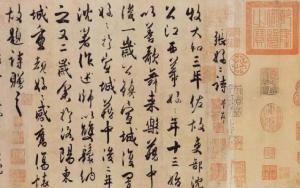 張好好詩
牧大和三年佐故吏部沈
公江西幕好好年十三始
以善歌舞來樂籍中
後一歲公鎮宣城復置
好好於宣城籍中後二年
沈著作述師以雙鬟納
之又二歲余於洛陽東
城重覩好好感舊傷懷
故題詩贈之